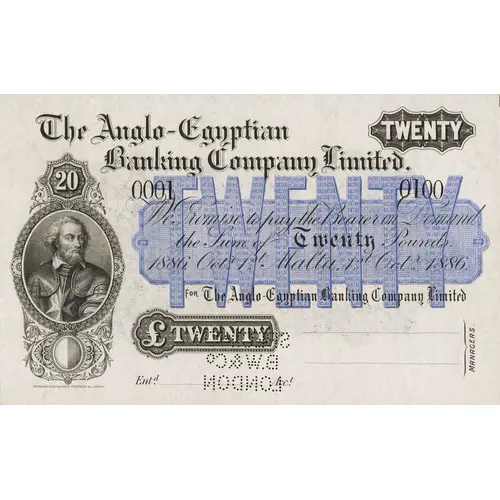 The Anglo-Egyptian
Banking Company Limited.
TWENTY
20
0001
0100
TWENTY
We Promise to pay the Bearer on Demand
the Sum of Twenty Pounds
1886. Oct.r 1st. Malta, 1st Oct.r 1886.
FOR The Anglo-Egyptian Banking Company Limited
£TWENTY
B.W.&Cº
LONDON
Ent.d
Acc.t
MANAGERS.